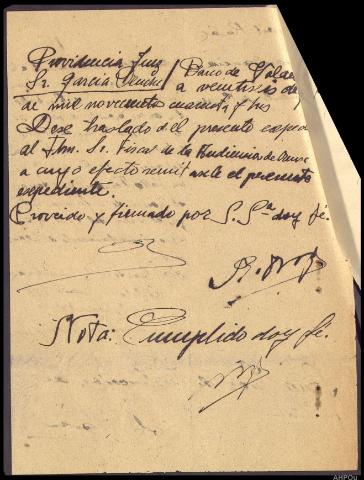 Providencia Juez
Sr. Garcia / Barco de Valde
a veintiseis de
de mil novecientos cuarenta y tres
Dese traslado del presente exped
al Ilmo. Sr. Fiscal de la Audiencia de Orense
a cuyo efecto remit el presente
expediente.
Proveido y firmado por S. Sª doy fé.
Nota: Cumplido doy fé.
AHPOU